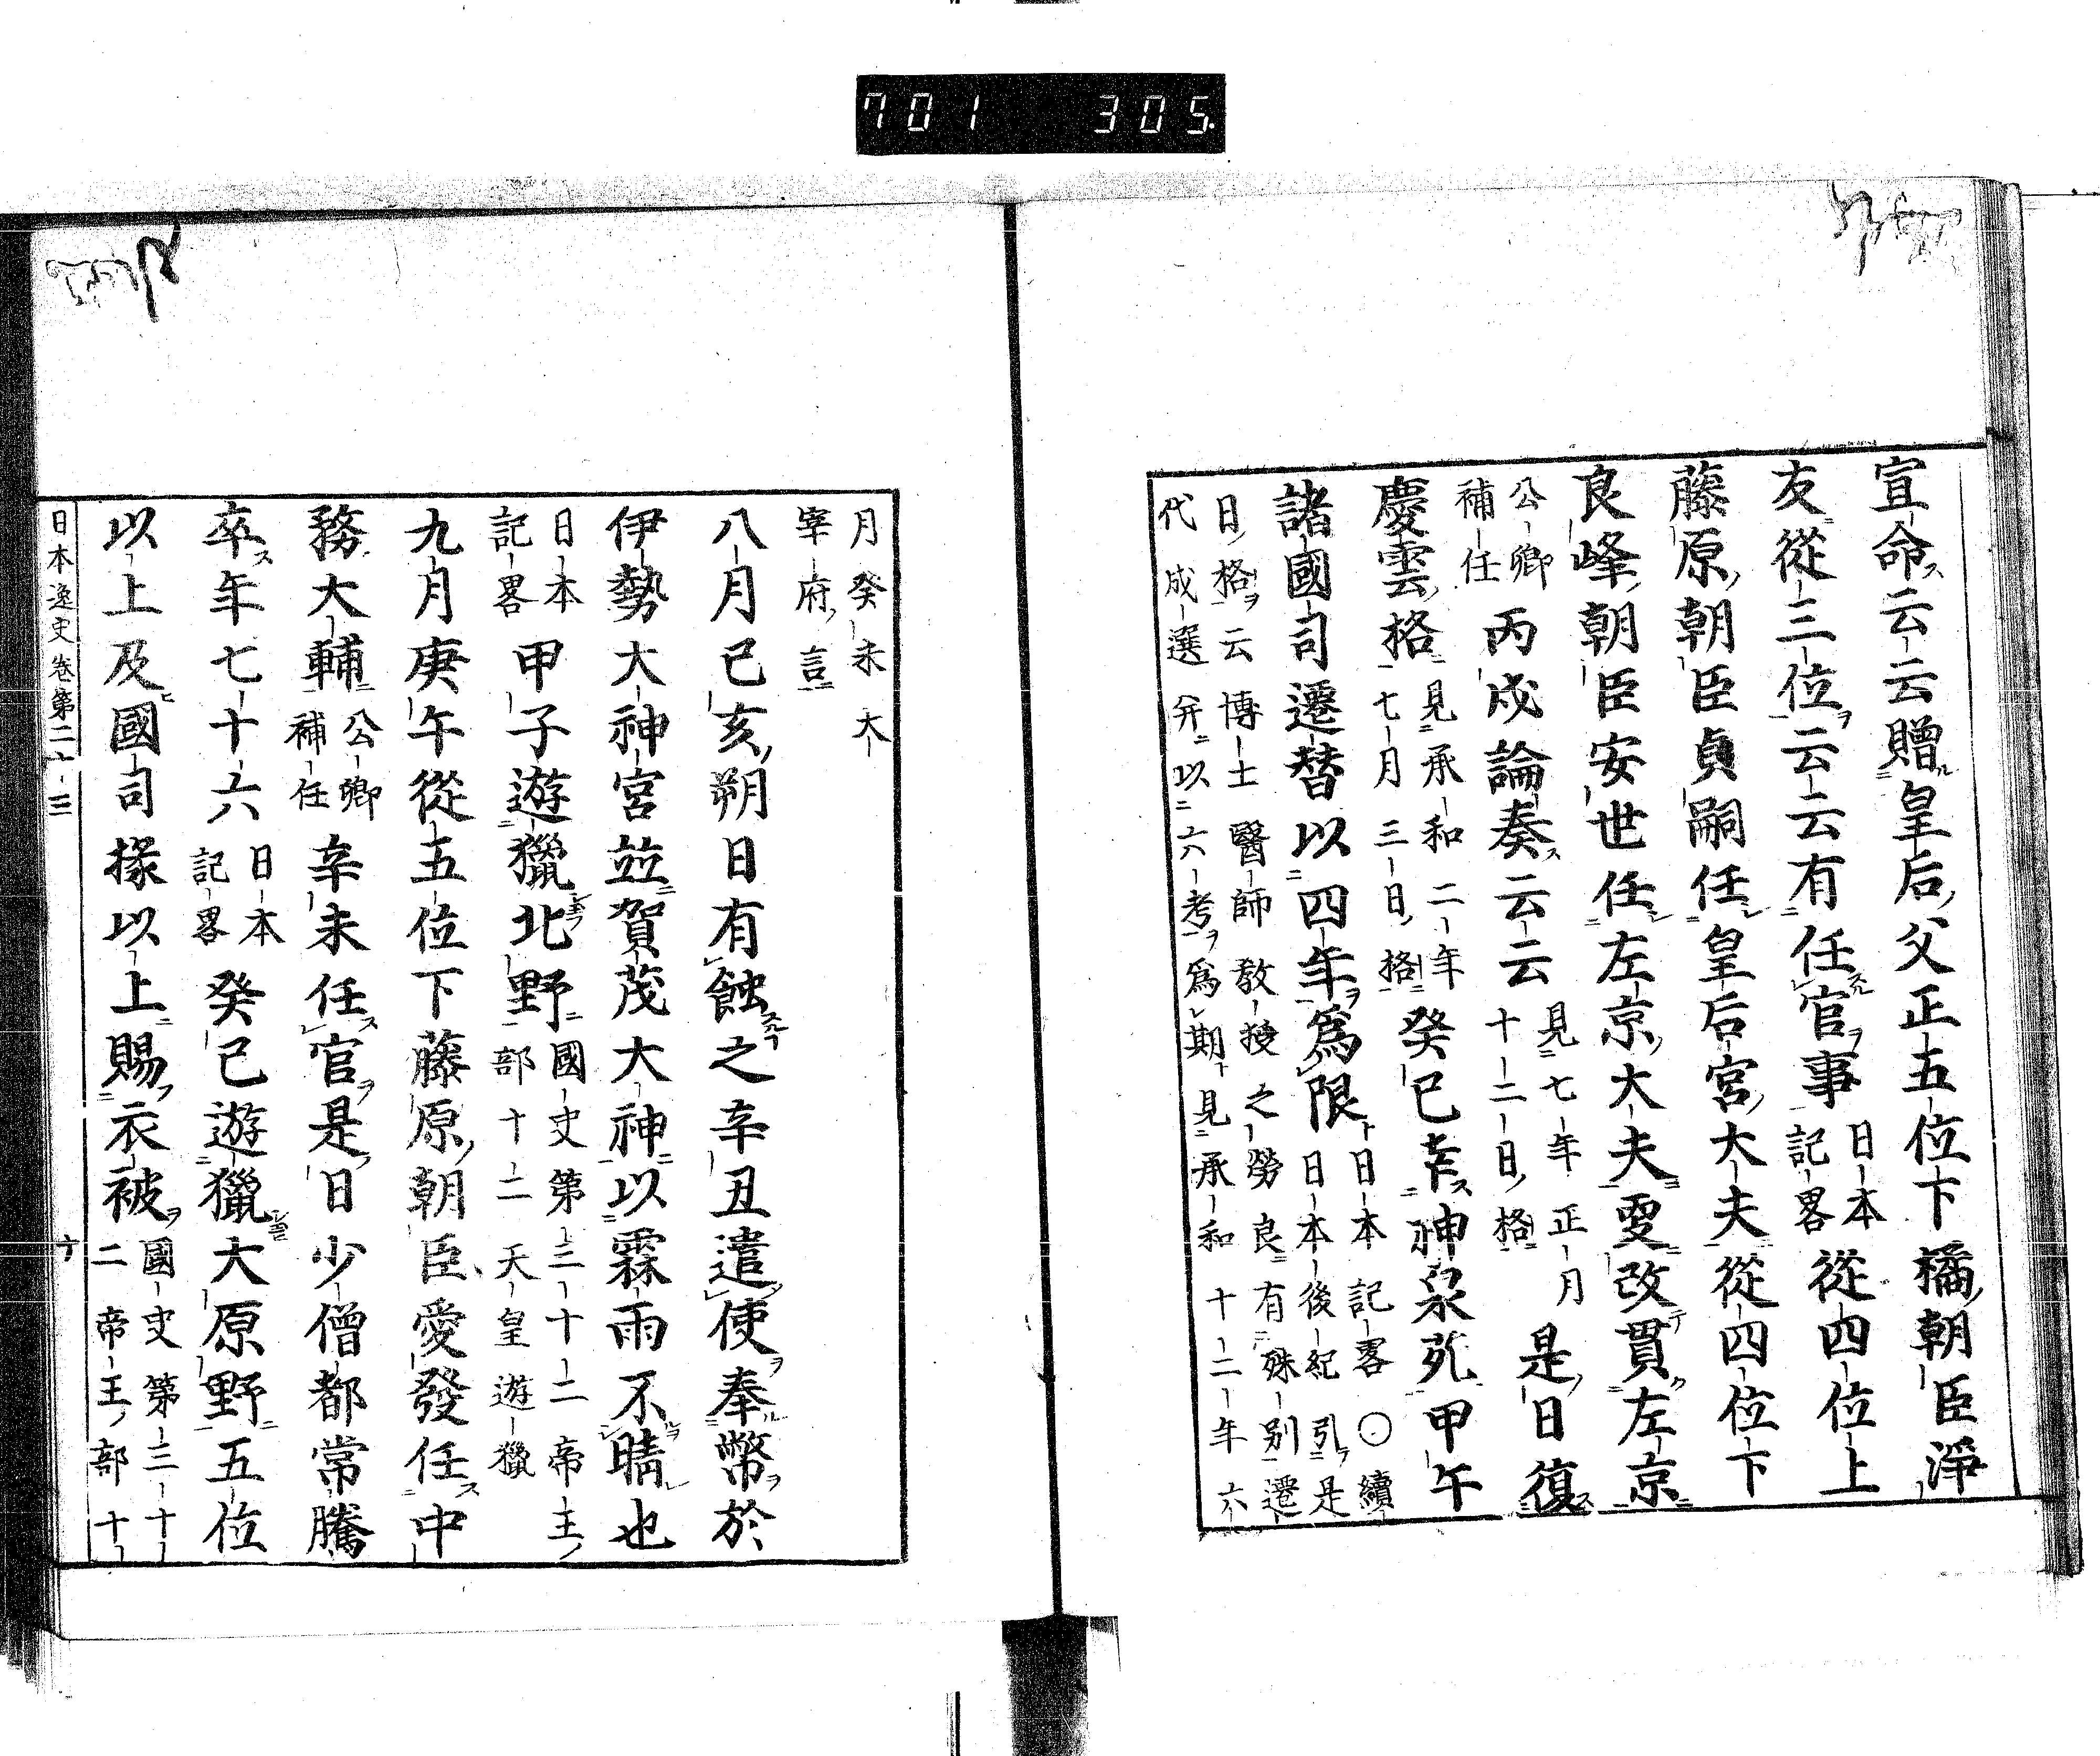 701 305
宣命云云贈皇后父正五位下橘朝臣淨
友從三位云云有任官事日本記畧從四位上
藤原朝臣貞嗣任皇后宮大夫從四位下
良峰朝臣安世任左京大夫更改貫左京
公卿補任丙戌論奏云云見七年正月十二日格是日復
慶雲格見承和二年七月三日格癸巳幸神泉苑甲午
諸國司遷替以四年爲限日本記畧〇續日本後紀引是
日格云博士醫師教授之勞良有殊別遷
代成選并以六考爲期見承和十二年六
月癸未大
宰府言
八月己亥朔日有蝕之辛丑遣使奉幣於
伊勢大神宮並賀茂大神以霖雨不晴也
日本記畧甲子遊獵北野國史第三十二帝王部十二天皇遊獵
九月庚午從五位下藤原朝臣愛發任中
務大輔公卿補任辛未任官是日少僧都常騰
卒年七十六日本記畧癸巳遊獵大原野五位
以上及國司掾以上賜衣被國史第三十二帝王部十
日本逸史卷第二十三 十